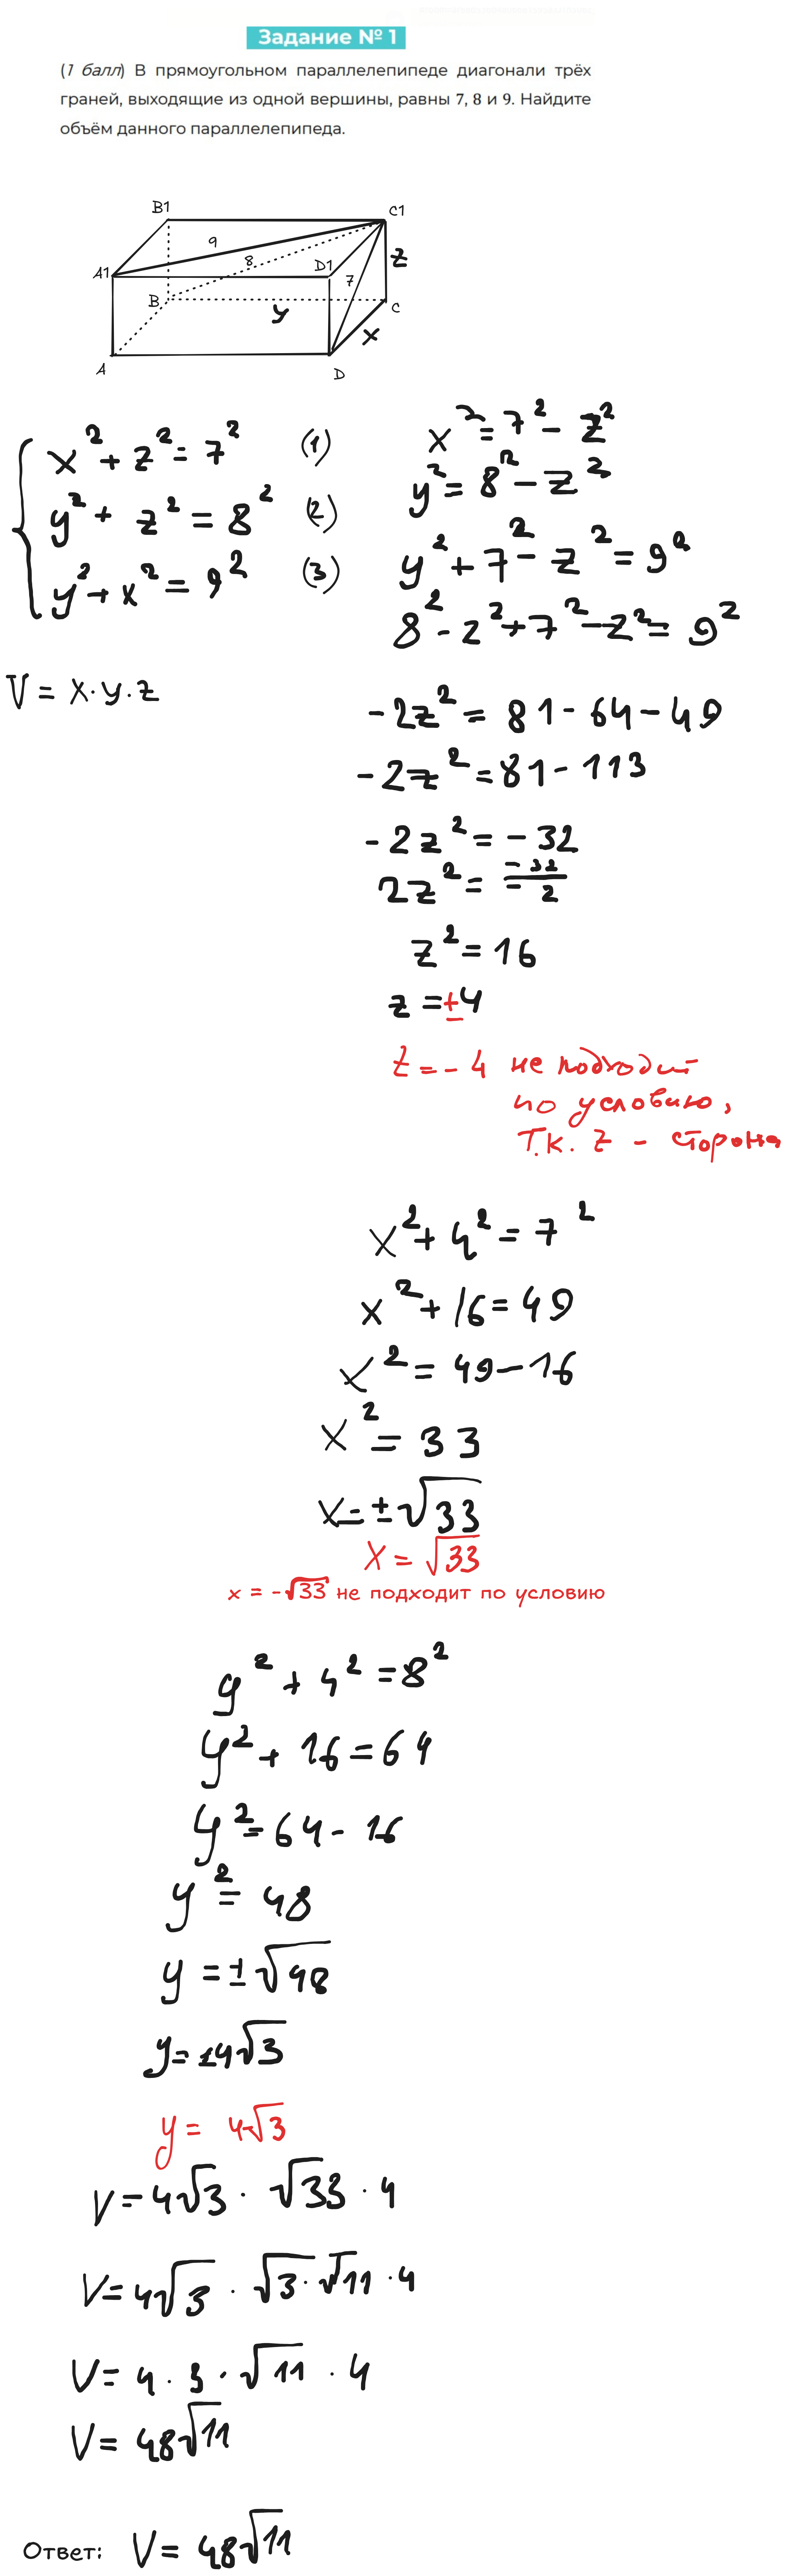 Задание № 1
(1 балл) В прямоугольном параллелепипеде диагонали трёх
граней, выходящие из одной вершины, равны 7, 8 и 9. Найдите
объём данного параллелепипеда.
B1
C1
9
8
A1
D1
7
z
B
C
y
x
A
D
x² + z² = 7² (1)
y² + z² = 8² (2)
y² + x² = 9² (3)
V = x · y · z
x² = 7² − z²
y² = 8² − z²
y² + 7² − z² = 9²
8² − z² + 7² − z² = 9²
−2z² = 81 − 64 − 49
−2z² = 81 − 113
−2z² = −32
2z² = −32/−2
z² = 16
z = ±4
z = −4 не подходит
по условию,
т.к. z − сторона
x² + 4² = 7²
x² + 16 = 49
x² = 49 − 16
x² = 33
x = ±√33
x = √33
x = −√33 не подходит по условию
y² + 4² = 8²
y² + 16 = 64
y² = 64 − 16
y² = 48
y = ±√48
y = ±4√3
y = 4√3
V = 4√3 · √33 · 4
V = 4√3 · √3 · √11 · 4
V = 4 · 3 · √11 · 4
V = 48√11
Ответ: V = 48√11